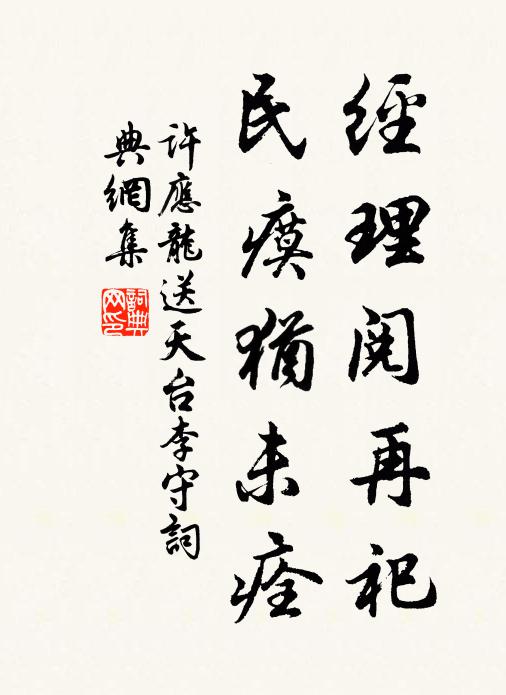 經理閱再祀
民瘼猶未痊
許應龍送天台李守詞
典網集
詞典網印